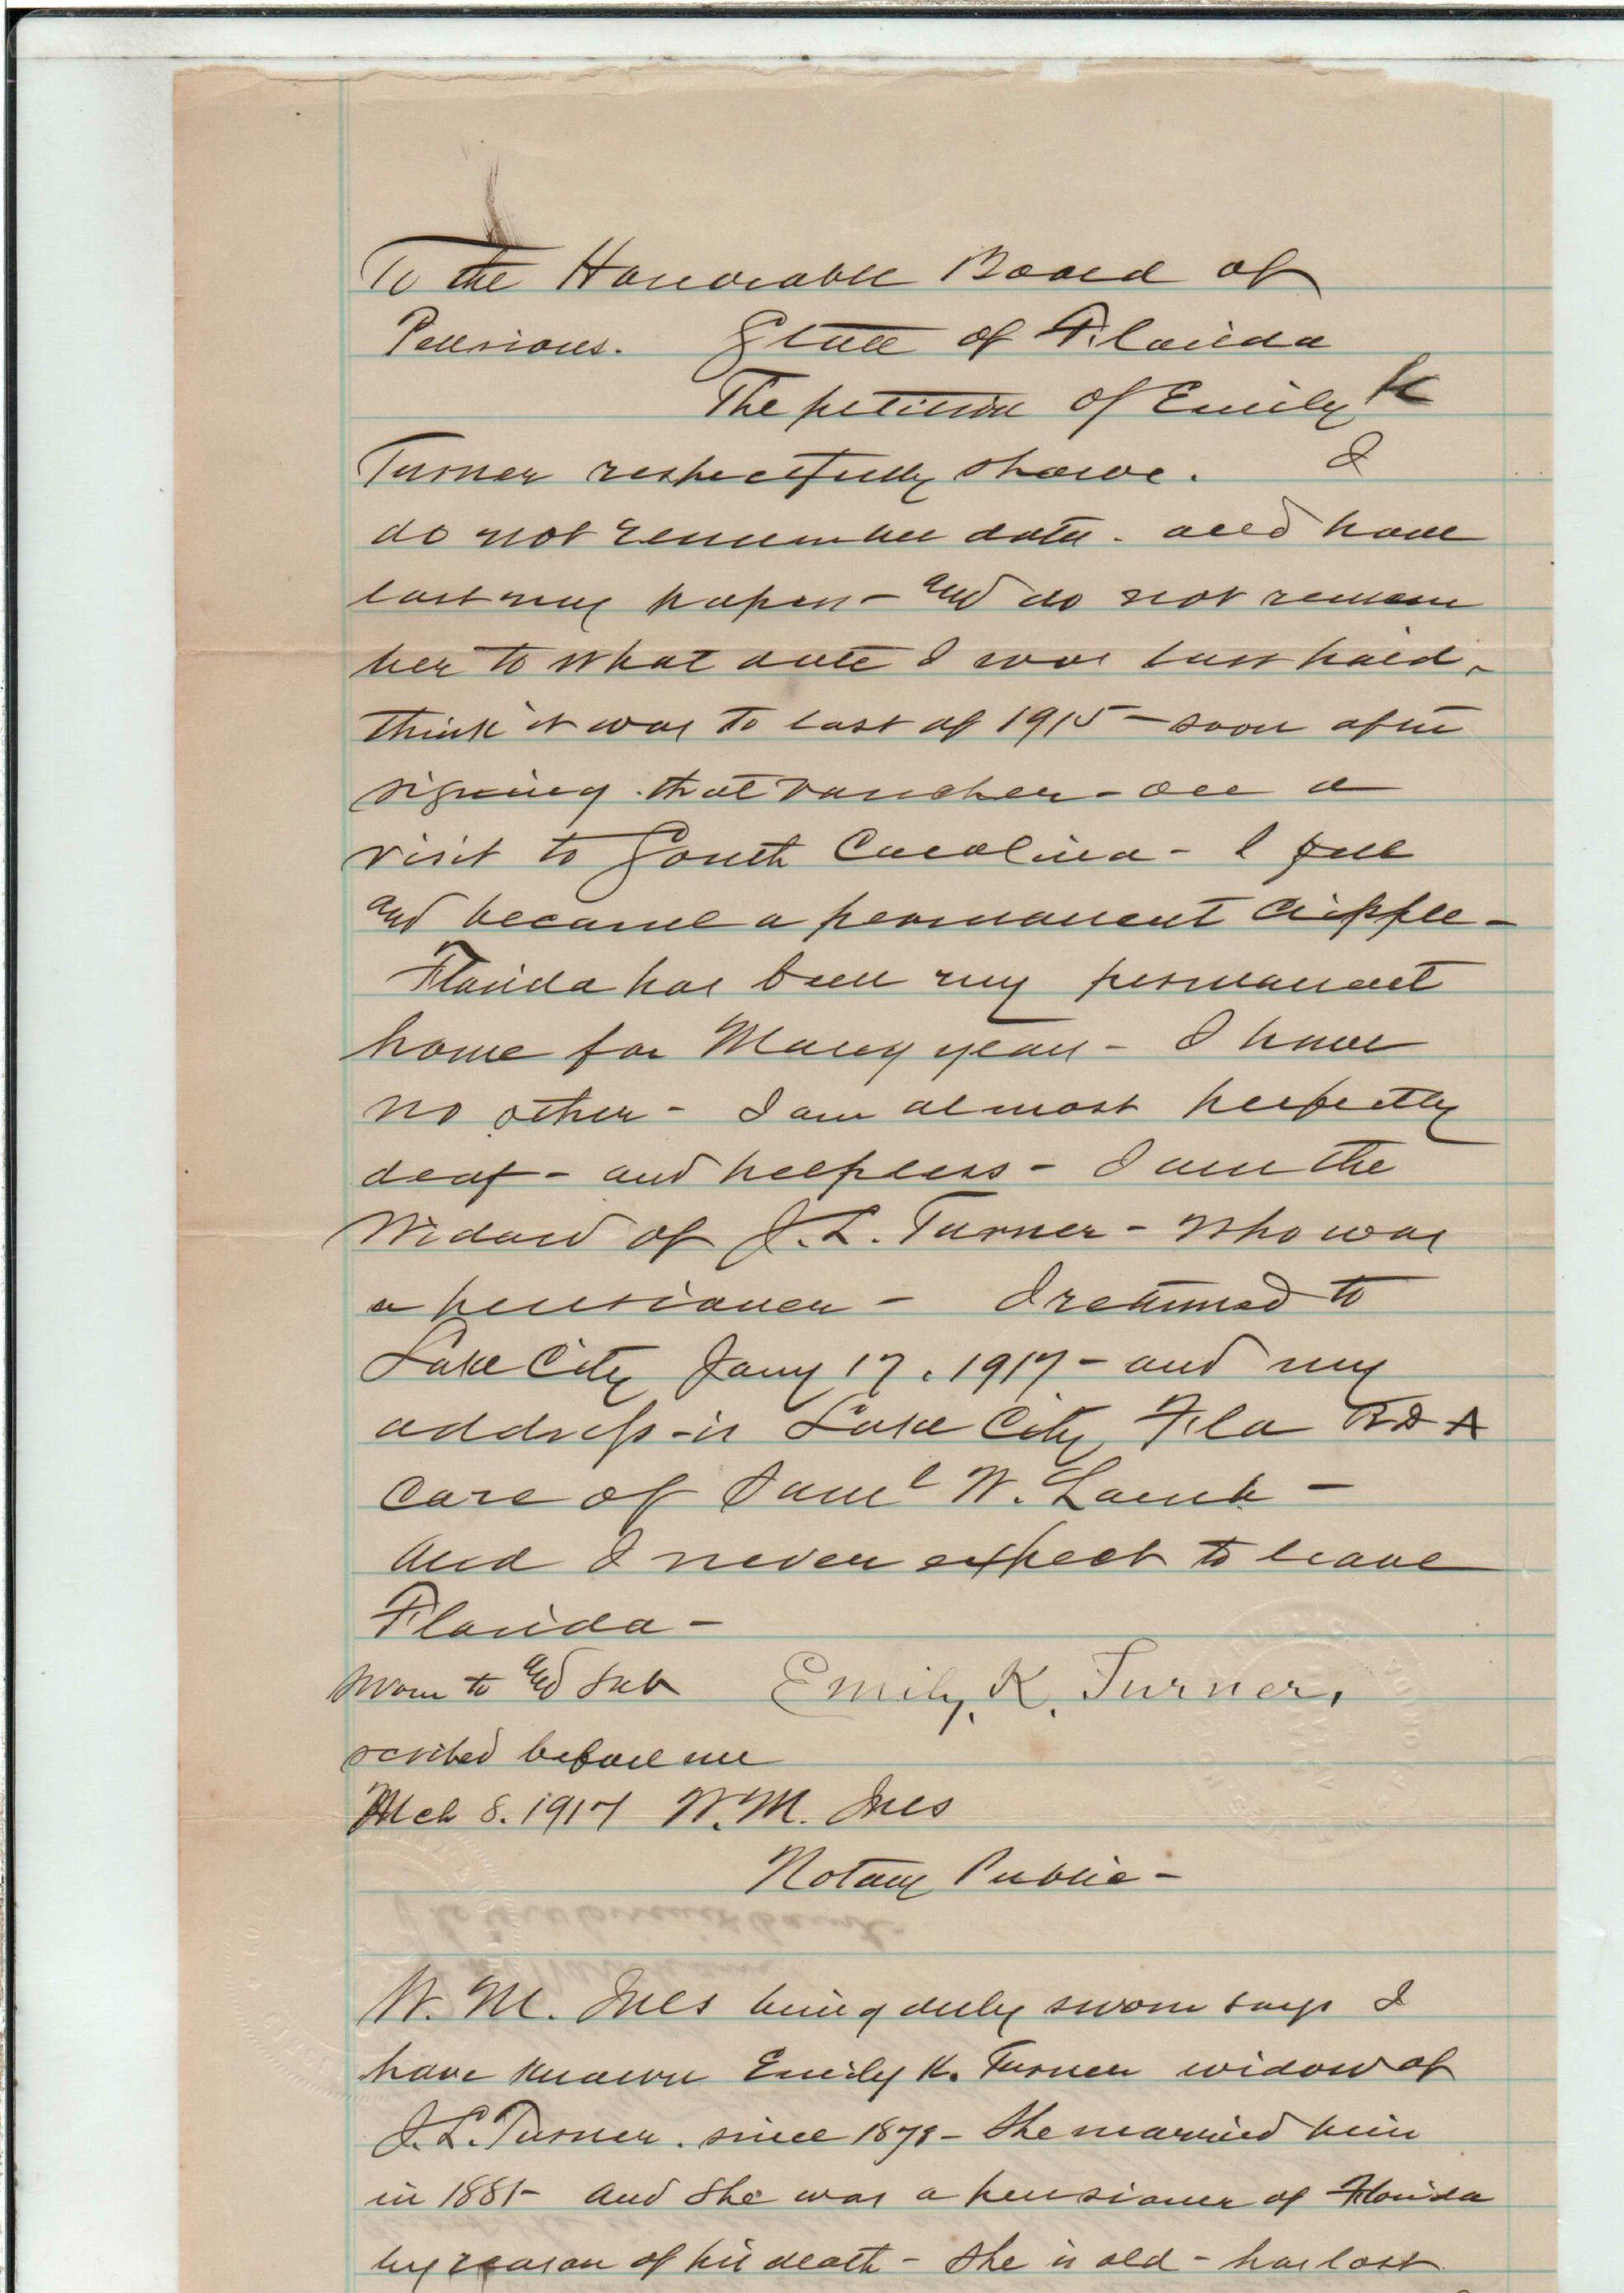 To the Honorable Board of
Pensions. State of Florida
The petition of Emily K
Turner respectfully shows. I
do not remember date. and have
lost my papers - and do not remem
ber to what date I was last paid.
think it was to last of 1915 - soon after
signing that voucher - on a
visit to South Carolina - I fell
and became a permanent cripple -
Florida has been my permanent
home for Many years - I have
no other - I am almost perfectly
deaf - and helpless - I am the
Widow of J. L. Turner - who was
a pensioner - I returned to
Lake City Jany 17. 1917 - and my
address is Lake City Fla RD A
care of Saml W. Lamb -
and I never expect to leave
Florida -
Sworn to and sub Emily. K. Turner.
scribed before me
Mch 8. 1917 W. M. Ives
Notary Public -
W. M. Ives being duly sworn says I
have known Emily K. Turner widow of
J. L. Turner. since 1878 - She married him
in 1885 - and she was a pensioner of Florida
by reason of his death - She is old - has lost